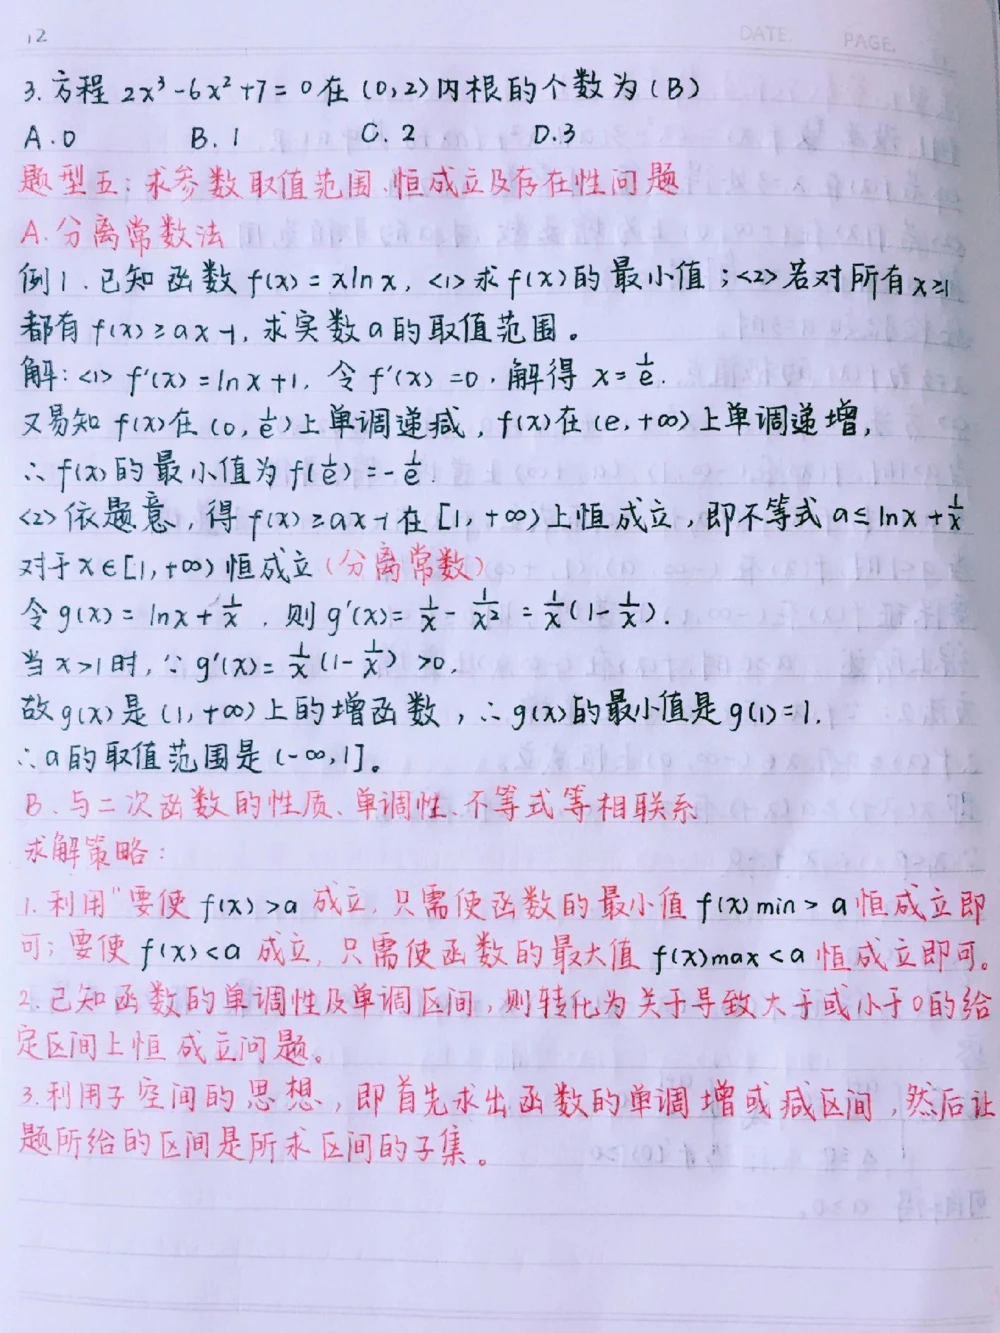 12
DATE. PAGE.
3.方程 2x³-6x²+7=0在(0,2)内根的个数为(B)
A.0 B.1 C.2 D.3
题型五:求参数取值范围、恒成立及存在性问题
A.分离常数法
例1.已知函数f(x)=xlnx,<1>求f(x)的最小值;<2>若对所有x≥1
都有f(x)≥ax-1,求实数a的取值范围。
解:<1>f'(x)=lnx+1.令f'(x)=0,解得x=1/e.
又易知f(x)在(0,1/e)上单调递减,f(x)在(e,+∞)上单调递增,
∴f(x)的最小值为f(1/e)=-1/e.
<2>依题意,得f(x)≥ax-1在[1,+∞)上恒成立,即不等式a≤lnx+1/x
对于x∈[1,+∞)恒成立(分离常数)
令g(x)=lnx+1/x,则g'(x)=1/x-1/x²=1/x(1-1/x).
当x>1时,∵g'(x)=1/x(1-1/x)>0,
故g(x)是(1,+∞)上的增函数,∴g(x)的最小值是g(1)=1.
∴a的取值范围是(-∞,1]。
B.与二次函数的性质、单调性、不等式等相联系
求解策略:
1.利用"要使f(x)>a成立,只需使函数的最小值f(x)min>a恒成立即
可;要使f(x)<a成立,只需使函数的最大值f(x)max<a恒成立即可。
2.已知函数的单调性及单调区间,则转化为关于导致大于或小于0的给
定区间上恒成立问题。
3.利用子空间的思想,即首先求出函数的单调增或减区间,然后让
题所给的区间是所求区间的子集。